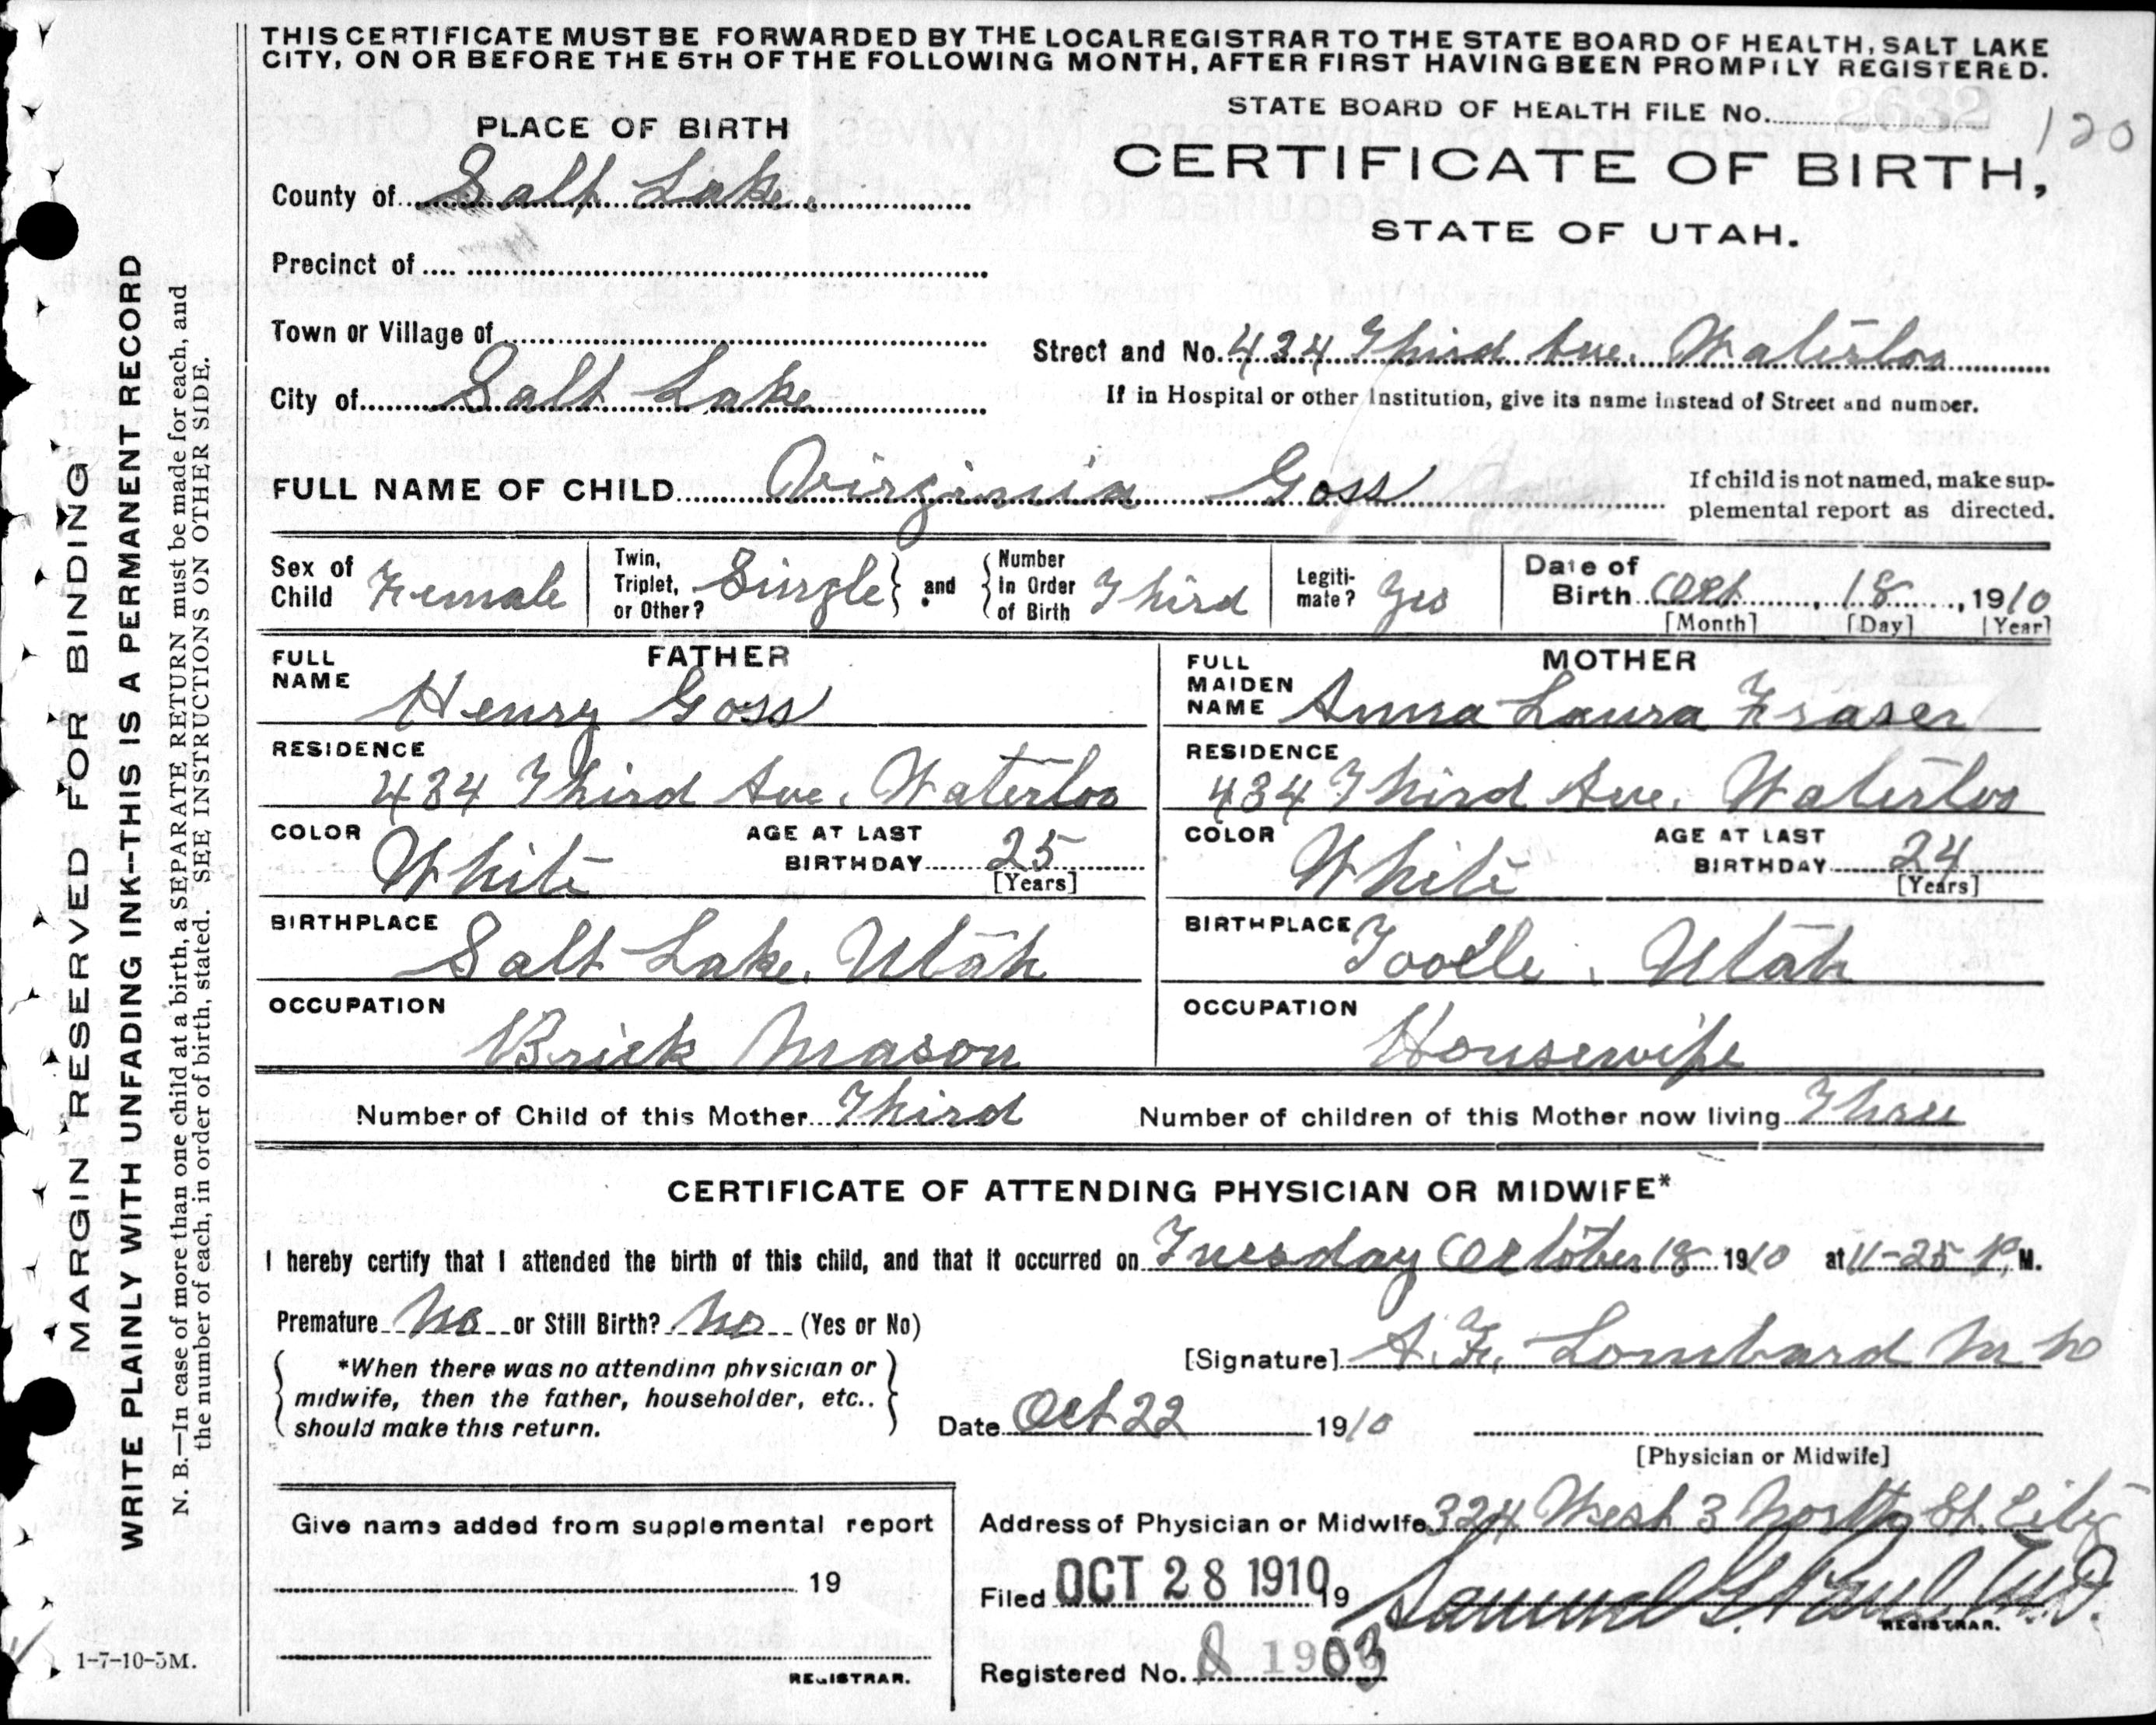 THIS CERTIFICATE MUST BE FORWARDED BY THE LOCAL REGISTRAR TO THE STATE BOARD OF HEALTH, SALT LAKE
CITY, ON OR BEFORE THE 5TH OF THE FOLLOWING MONTH, AFTER FIRST HAVING BEEN PROMPILY REGISTERED.
STATE BOARD OF HEALTH FILE No. 2632
120
PLACE OF BIRTH
CERTIFICATE OF BIRTH,
STATE OF UTAH.
County of Salt Lake.
Precinct of
Town or Village of
Street and No. 434 Third Ave. Waterloo
City of Salt Lake
If in Hospital or other Institution, give its name instead of Street and number.
FULL NAME OF CHILD Virginia Goss
If child is not named, make sup-
plemental report as directed.
Sex of Child Female
Twin, Triplet, or Other? Single and
Number in Order of Birth Third
Legiti-mate? Yes
Date of Birth Oct 18, 1910
[Month] [Day] [Year]
FATHER
FULL NAME Henry Goss
RESIDENCE
434 Third Ave. Waterloo
COLOR White
AGE AT LAST BIRTHDAY 25
[Years]
BIRTHPLACE
Salt Lake, Utah
OCCUPATION
Brick Mason
MOTHER
FULL MAIDEN NAME Anna Laura Fraser
RESIDENCE
434 Third Ave. Waterloo
COLOR White
AGE AT LAST BIRTHDAY 24
[Years]
BIRTHPLACE Tooelle, Utah
OCCUPATION
Housewife
Number of Child of this Mother Third
Number of children of this Mother now living Three
CERTIFICATE OF ATTENDING PHYSICIAN OR MIDWIFE*
I hereby certify that I attended the birth of this child, and that it occurred on Tuesday October 18 1910 at 11-25 P. M.
Premature No or Still Birth? No (Yes or No)
[Signature] A. F. Lombard M D
*When there was no attending physician or
midwife, then the father, householder, etc..
should make this return.
Date Oct 22 1910
[Physician or Midwife]
Give name added from supplemental report
19
REGISTRAR.
Address of Physician or Midwife 324 West 3 North St. City
Filed OCT 28 1910 19
Samuel G. Paul M.D.
REGISTRAR.
Registered No.
MARGIN RESERVED FOR BINDING
WRITE PLAINLY WITH UNFADING INK--THIS IS A PERMANENT RECORD
N. B.—In case of more than one child at a birth, a SEPARATE RETURN must be made for each, and
the number of each, in order of birth, stated. SEE INSTRUCTIONS ON OTHER SIDE.
1-7-10-5M.